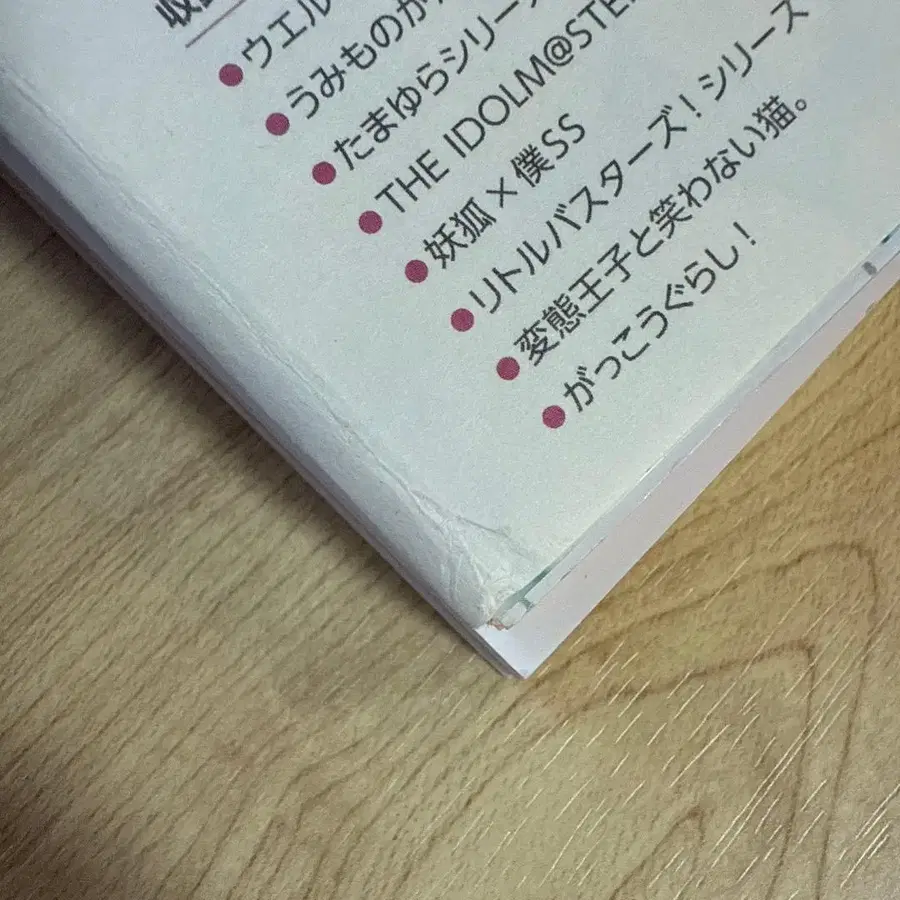 収
ウエル
うみものが
たまゆらシリーズ
THE IDOLM@STE
妖狐×僕SS
リトルバスターズ！シリーズ
変態王子と笑わない猫。
がっこうぐらし！